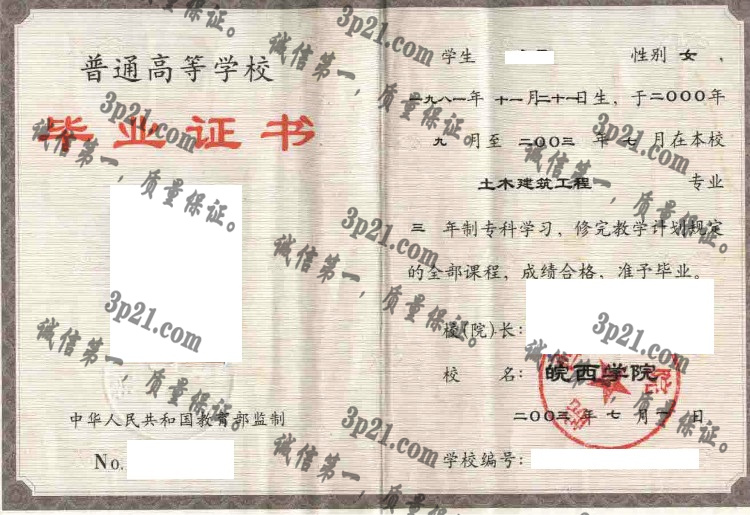 普通高等学校
毕业证书
中华人民共和国教育部监制
No.
学生 性别 女 ，
一九八一年 十一月二十一日生，于二〇〇〇年
九 月至 二〇〇三 年 七 月在本校
土木建筑工程 专业
三 年制专科学习，修完教学计划规定
的全部课程，成绩合格，准予毕业。
校(院)长：
校 名： 皖西学院
二〇〇三 年 七 月 一 日
学校编号：
3p21.com
诚信第一，质量保证。
3p21.com
诚信第一，质量保证。
3p21.com
诚信第一，质量保证。
3p21.com
诚信第一，质量保证。
3p21.com
诚信第一，质量保证。
3p21.com
诚信第一，质量保证。
3p21.com
诚信第一，质量保证。
3p21.com
诚信第一，